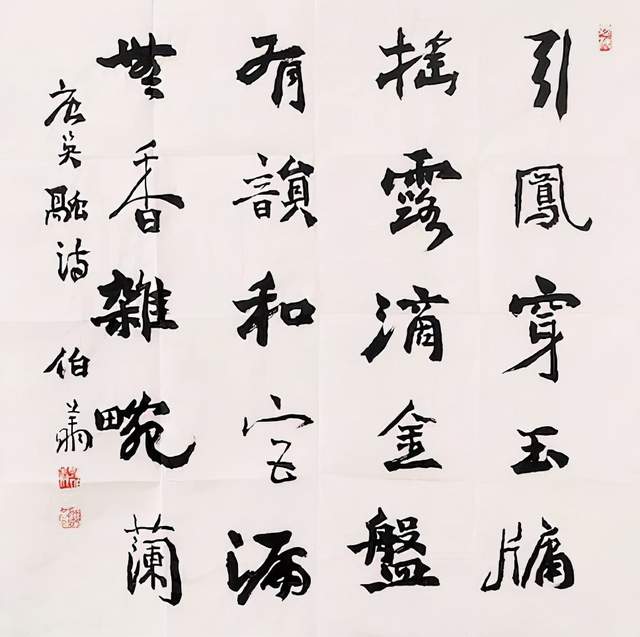 引鳳穿玉牖
搖露滴金盤
有韻和宮漏
無香雜畹蘭
唐吳融詩
伯